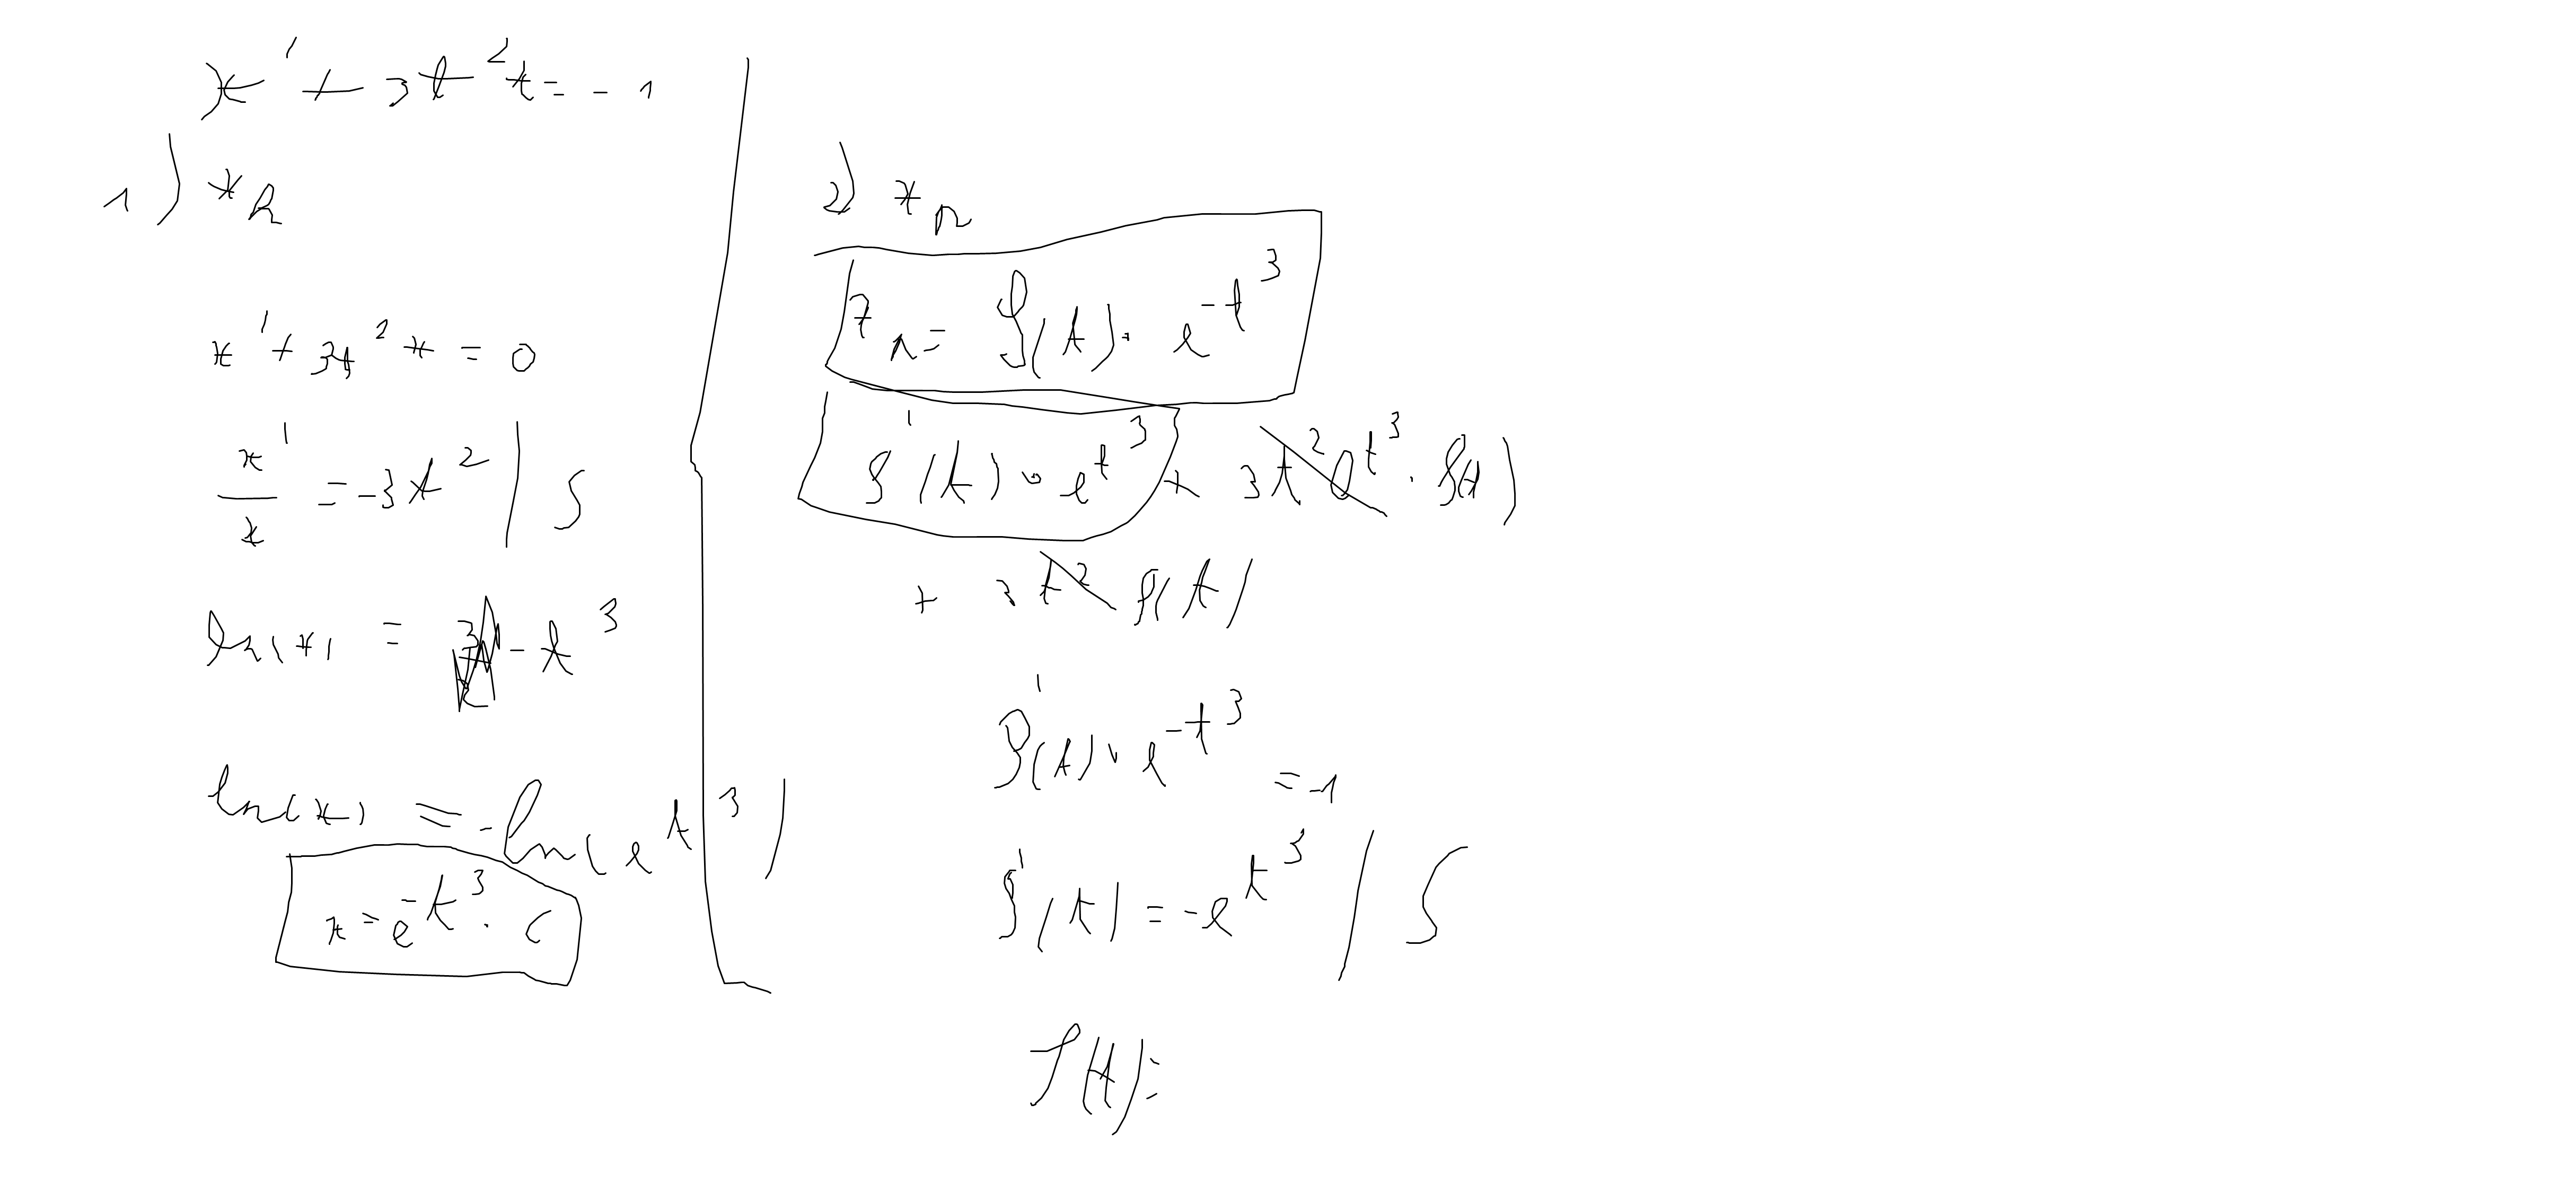 x' + 3t²x = -1
1) x_h
x' + 3t²x = 0
x'/x = -3t² | ∫
ln|x| = -t³
ln|x| = -ln(e^t³)
x = e^-t³ · c
2) x_n
x_n = f(t) · e^-t³
f'(t) · e^t³ + 3t²e^t³ · f(t)
+ 3t² f(t)
f'(t) · e^-t³ = -1
f'(t) = -e^t³ | ∫
f(t) =